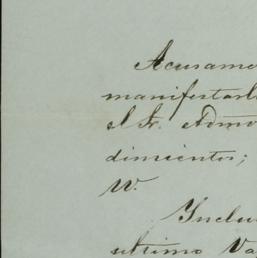 Acusamo
manifestarl
el Sr. Admo
dimientos;
W.
Inclu
ultimo Va